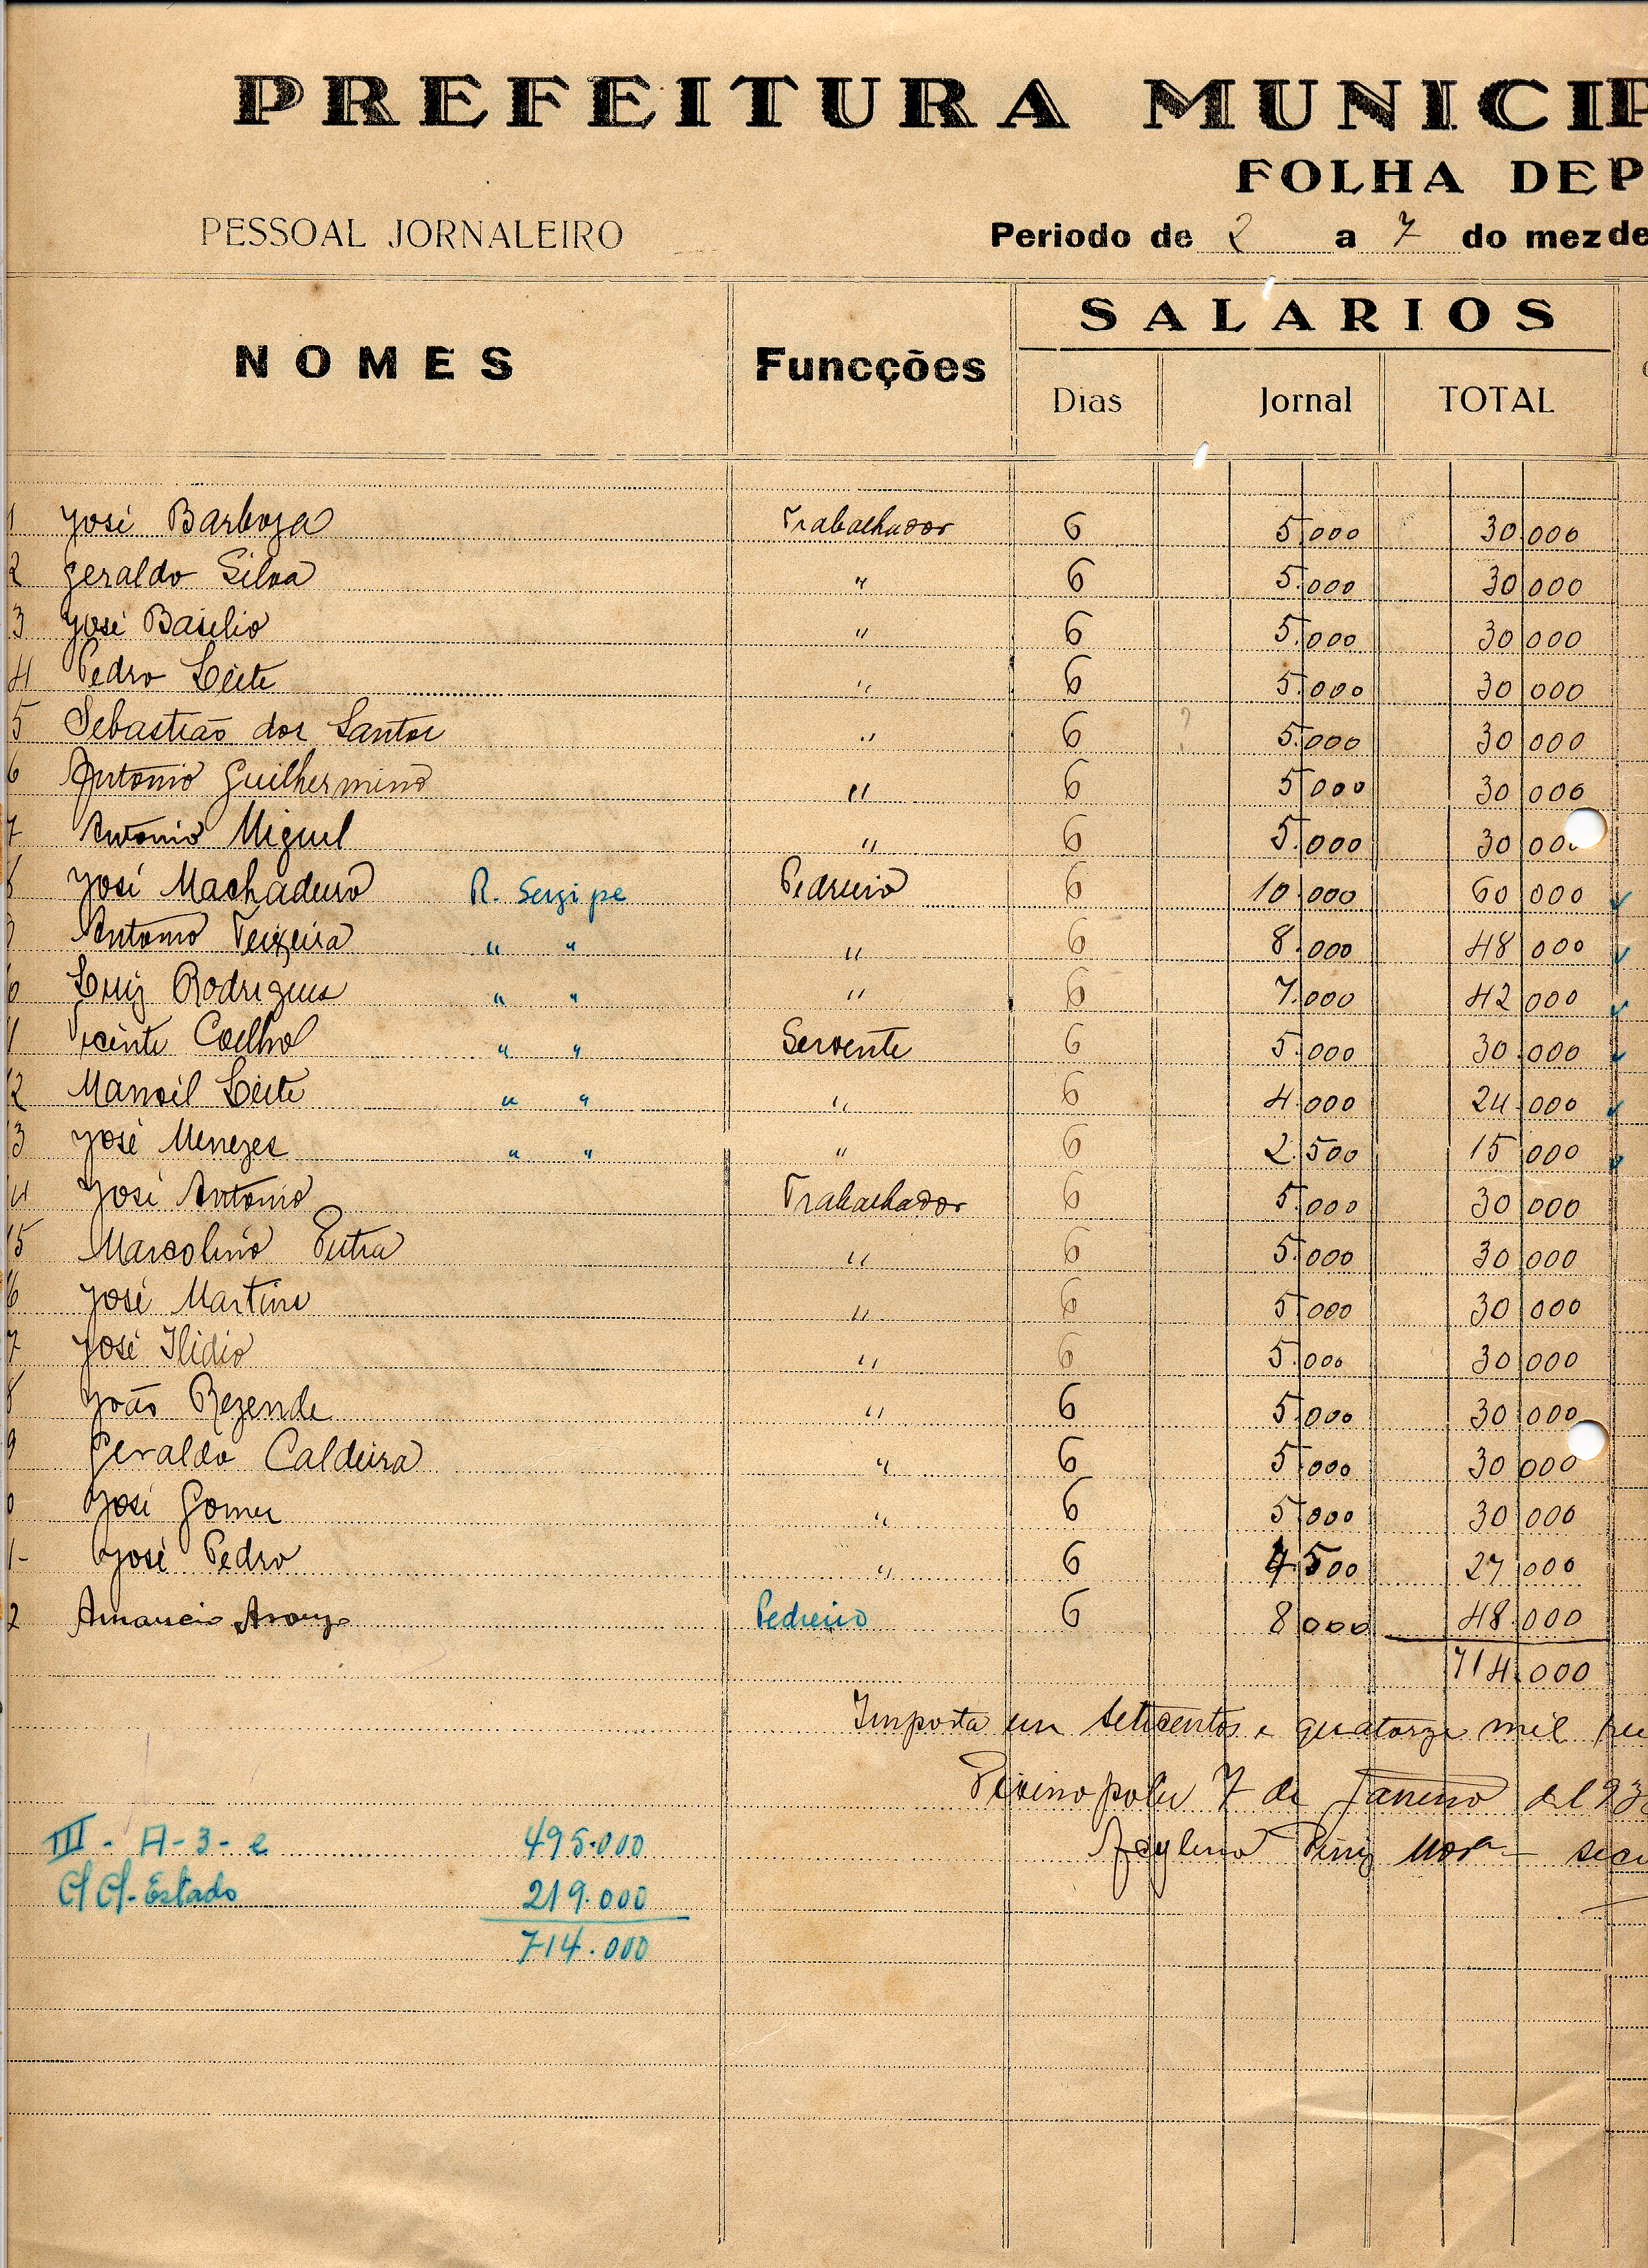 PREFEITURA MUNICIP
FOLHA DE P
PESSOAL JORNALEIRO Periodo de 2 a 7 do mez de
NOMES Funcções SALARIOS
Dias Jornal TOTAL
1 José Barboza Trabalhador 6 5.000 30.000
2 Geraldo Silva " 6 5.000 30.000
3 José Basilio " 6 5.000 30.000
4 Pedro Leite " 6 5.000 30.000
5 Sebastião dos Santos " 6 5.000 30.000
6 Antonio Guilhermino " 6 5.000 30.000
7 Antonio Miguel " 6 5.000 30.000
8 José Machadeiro R. Sergipe Pedreiro 6 10.000 60.000
9 Antonio Teixeira " " " 6 8.000 48.000
0 Luiz Rodrigues " " " 6 7.000 42.000
11 Vicente Coelho " " Servente 6 5.000 30.000
12 Manoel Leite " " " 6 4.000 24.000
13 José Menezes " " " 6 2.500 15.000
14 José Antonio Trabalhador 6 5.000 30.000
15 Marcolino " 6 5.000 30.000
16 José Martins " 6 5.000 30.000
7 José Ilidio " 6 5.000 30.000
8 João Rezende " 6 5.000 30.000
9 Geraldo Caldeira " 6 5.000 30.000
0 José Gomes " 6 5.000 30.000
1- José Pedro " 6 4.500 27.000
2 Amancio Araujo Pedreiro 6 8.000 48.000
714.000
Importa em setecentos e quatorze mil
Divinopolis 7 de Janeiro de 193
III - A-3-e 495.000
C/C/-Estado 219.000
714.000